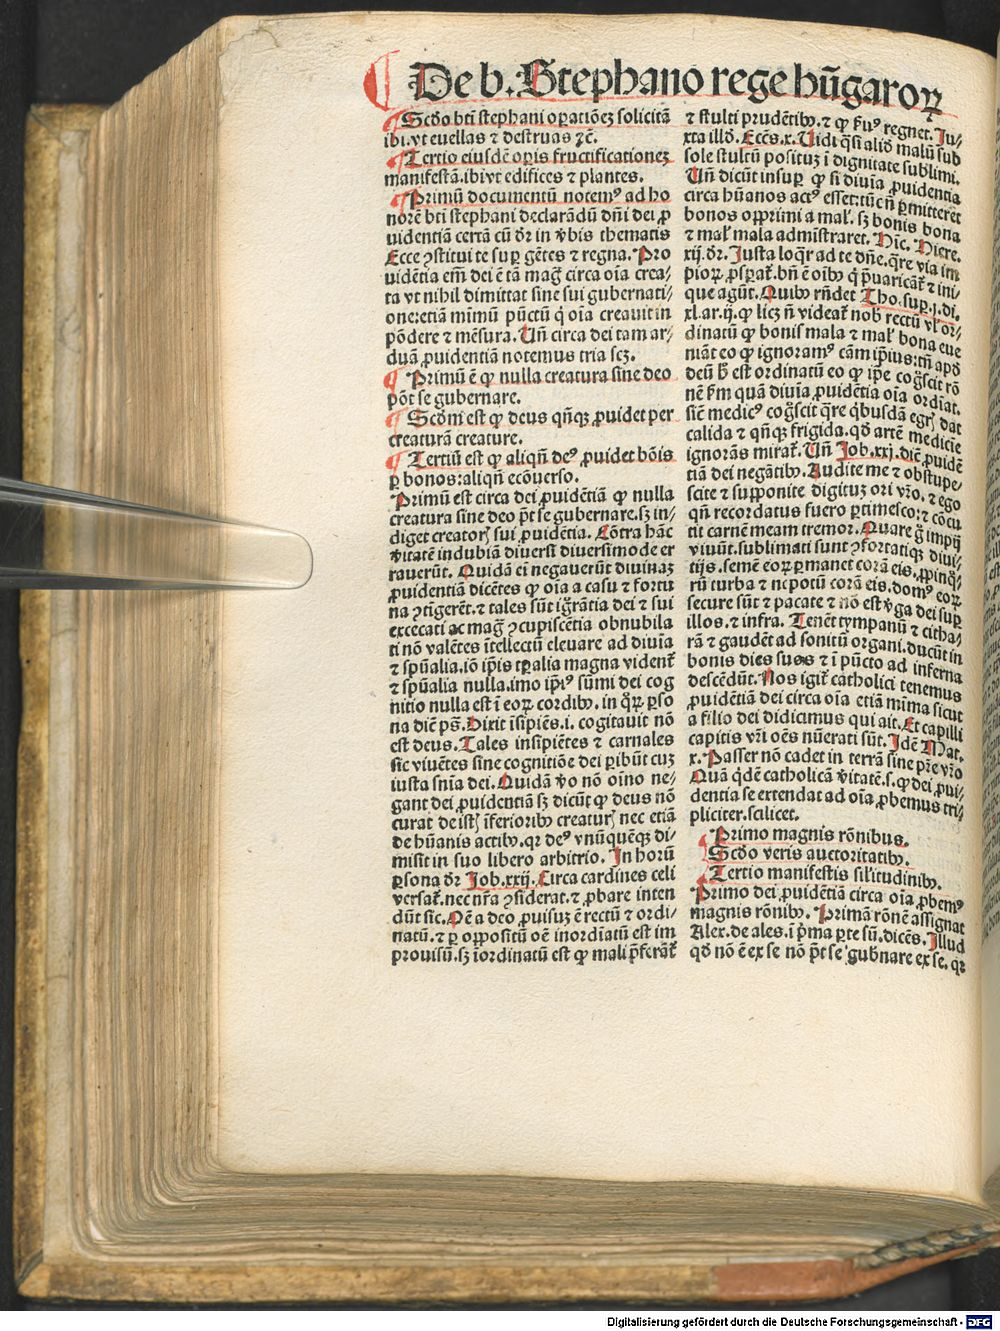 De b. Stephano rege hũgaroꝝ
¶ Scd̃o bt̃i stephani oꝑatiõeꝫ solicitã
ibi. vt euellas ⁊ destruas ⁊c̃.
¶ Tertio eiusdẽ oꝑis fructificationeꝫ
manifestã. ibi vt edifices ⁊ plantes.
¶ Primũ documentũ notemꝰ ad ho
norẽ bt̃i stephani declarãdũ dñi dei ꝓ
uidentiã certã cũ dr̃ in v̾bis thematis
Ecce ꝯstitui te suꝑ gẽtes ⁊ regna. Pro
uidẽtia em̃ dei ẽ tã mag̃ circa oĩa crea⸗
ta vt nihil dimittat sine sui gubernati⸗
one: etiã mimũ pũctũ q̃ oĩa creauit in
põdere ⁊ mẽsura. Uñ circa dei tam ar⸗
duã ꝓuidentiã notemus tria scꝫ.
¶ Primũ ẽ ꝙ nulla creatura sine deo
põt se gubernare.
¶ Scd̃m est ꝙ deus qñqꝫ ꝓuidet per
creaturã creature.
¶ Tertiũ est ꝙ aliqñ deꝰ ꝓuidet bõis
ꝑ bonos: aliqñ ecõuerso.
Primũ est circa dei ꝓuidẽtiã ꝙ nulla
creatura sine deo p̃t se gubernare. sꝫ in⸗
diget creatorꝭ sui ꝓuidẽtia. Cõtra hãc
v̾itatẽ indubiã diuersi diuersimode er
rauerũt. Quidã ei negauerũt diuinaꝫ
ꝓuidentiã dicẽtes ꝙ oĩa a casu ⁊ fortu
na ꝯtigerẽt. ⁊ tales sũt ig̃rãtia dei ⁊ sui
excecati ac mag̃ ꝯcupiscẽtia obnubila
ti nõ valẽtes ĩtellectũ eleuare ad diuĩa
⁊ spũalia. iõ ip̃is tꝑalia magna vident̃
⁊ spũalia nulla. imo ip̃iꝰ sũmi dei cog
nitio nulla est ĩ eoꝝ cordibꝰ. in q̃ꝝ ꝑso
na diẽ ps̃. Dixit ĩsipiẽs. i. cogitauit nõ
est deus. Tales insipiẽtes ⁊ carnales
sic viuẽtes sine cognitiõe dei ꝑibũt cuꝫ
iusta sñia dei. Quidã v̾o nõ oĩno ne⸗
gant dei ꝓuidentiã sꝫ dicũt ꝙ deus nõ
curat de istꝭ ĩferioribꝰ creaturꝭ nec etiã
de hũanis actibꝰ. qꝛ deꝰ vnũquẽqꝫ di⸗
misit in suo libero arbitrio. In horũ
ꝑsona dr̃ Job. xxij. Circa cardines celi
versat̃. nec nr̃a ꝯsiderat. ⁊ ꝓbare inten
dũt sic. Oẽ a deo ꝓuisuꝫ ẽ rectũ ⁊ ordi⸗
natũ. ⁊ ꝑ oppositũ oẽ inordĩatũ est im
prouisũ. sꝫ ĩordinatũ est ꝙ mali p̃ferãt̃
⁊ stulti prudẽtibꝰ. ⁊ ꝙ f̃uꝰ regnet. Ju⸗
xta illd̃. Ecc̃s. x. Uidi q̃si aliđ malũ sub
sole stultũ posituꝫ ĩ dignitate sublimi.
Uñ dicũt insuꝑ ꝙ si diuĩa ꝓuidentia
circa hũanos actꝰ esset: tũc ñ ꝑmitteret
bonos opprimi a mal̃. sꝫ bonis bona
⁊ mal̃ mala admĩstraret. Hĩc. Hiere.
xij. dr̃. Justa loq̃r ad te dñe. q̃re via im
pioꝝ ꝓsꝑat̃. bñ ẽ oĩbꝰ q̃ p̃uaricãt̃ ⁊ ini⸗
que agũt. Quibꝰ rñdet Tho. suꝑ. j. di.
xl. ar. ij. ꝙ licꝫ ñ videat̃ nob̃ rectũ vl̃ or⸗
dinatũ ꝙ bonis mala ⁊ mal̃ bona eue
niãt eo ꝙ ignoramꝰ cãm ip̃ius: tñ apđ
deũ h̃ est ordinatũ eo ꝙ ip̃e cog̃scit rõ
nẽ f̃m quã diuĩa ꝓuidẽtia oĩa ordĩat.
sic̃ medicꝰ cog̃scit q̃re q̃busdã egrꝭ dat
calida ⁊ qñqꝫ frigida. qđ artẽ medicĩe
ignorãs mirat̃. Uñ Job. xxj. dic̃ ꝓuidẽ
tiã dei negãtibꝰ. Audite me ⁊ obstupe⸗
scite ⁊ suꝑponite digituꝫ ori vr̃o, ⁊ ego
qñ recordatus fuero ꝑtimesco: ⁊ cõcu
tit carnẽ meam tremor. Quare g̃ impij
viuũt. sublimati sunt ꝯfortatiqꝫ diui⸗
tijs. semẽ eoꝝ ꝑmanet corã eis. ꝓpinq̃⸗
rũ turba ⁊ nepotũ corã eis. domꝰ eoꝝ
secure sũt ⁊ pacate ⁊ nõ est v̾ga dei suꝑ
illos. ⁊ infra. Tenẽt tympanũ ⁊ citha⸗
rã ⁊ gaudẽt ad sonitũ organi. ducũt in
bonis dies suos ⁊ ĩ pũcto ad inferna
descẽdũt. Nos igit̃ catholici tenemus
ꝓuidẽtiã dei circa oĩa etiã mĩma sicut
a filio dei didicimus qui ait. Et capilli
capitis vr̃i oẽs nũerati sũt. Idẽ Mat.
x. Passer nõ cadet in terrã sine pr̃e vr̃o
Quã q̃dẽ catholicã v̾itatẽ. s. ꝙ dei ꝓui⸗
dentia se extendat ad oĩa ꝓbemus tri⸗
pliciter. scilicet.
¶ Primo magnis rõnibus.
¶ Scd̃o veris auctoritatibꝰ.
¶ Tertio manifestis sil̃itudinibꝰ.
Primo dei ꝓuidẽtiã circa oĩa ꝓbemꝰ
magnis rõnibꝰ. Primã rõnẽ assignat
Alex. de ales. ĩ p̃ma ꝑte sũ. dicẽs. Illud
qđ nõ ẽ ex se nõ p̃t se gub̃nare ex se. qꝛ
Digitalisierung gefördert durch die Deutsche Forschungsgemeinschaft - DFG